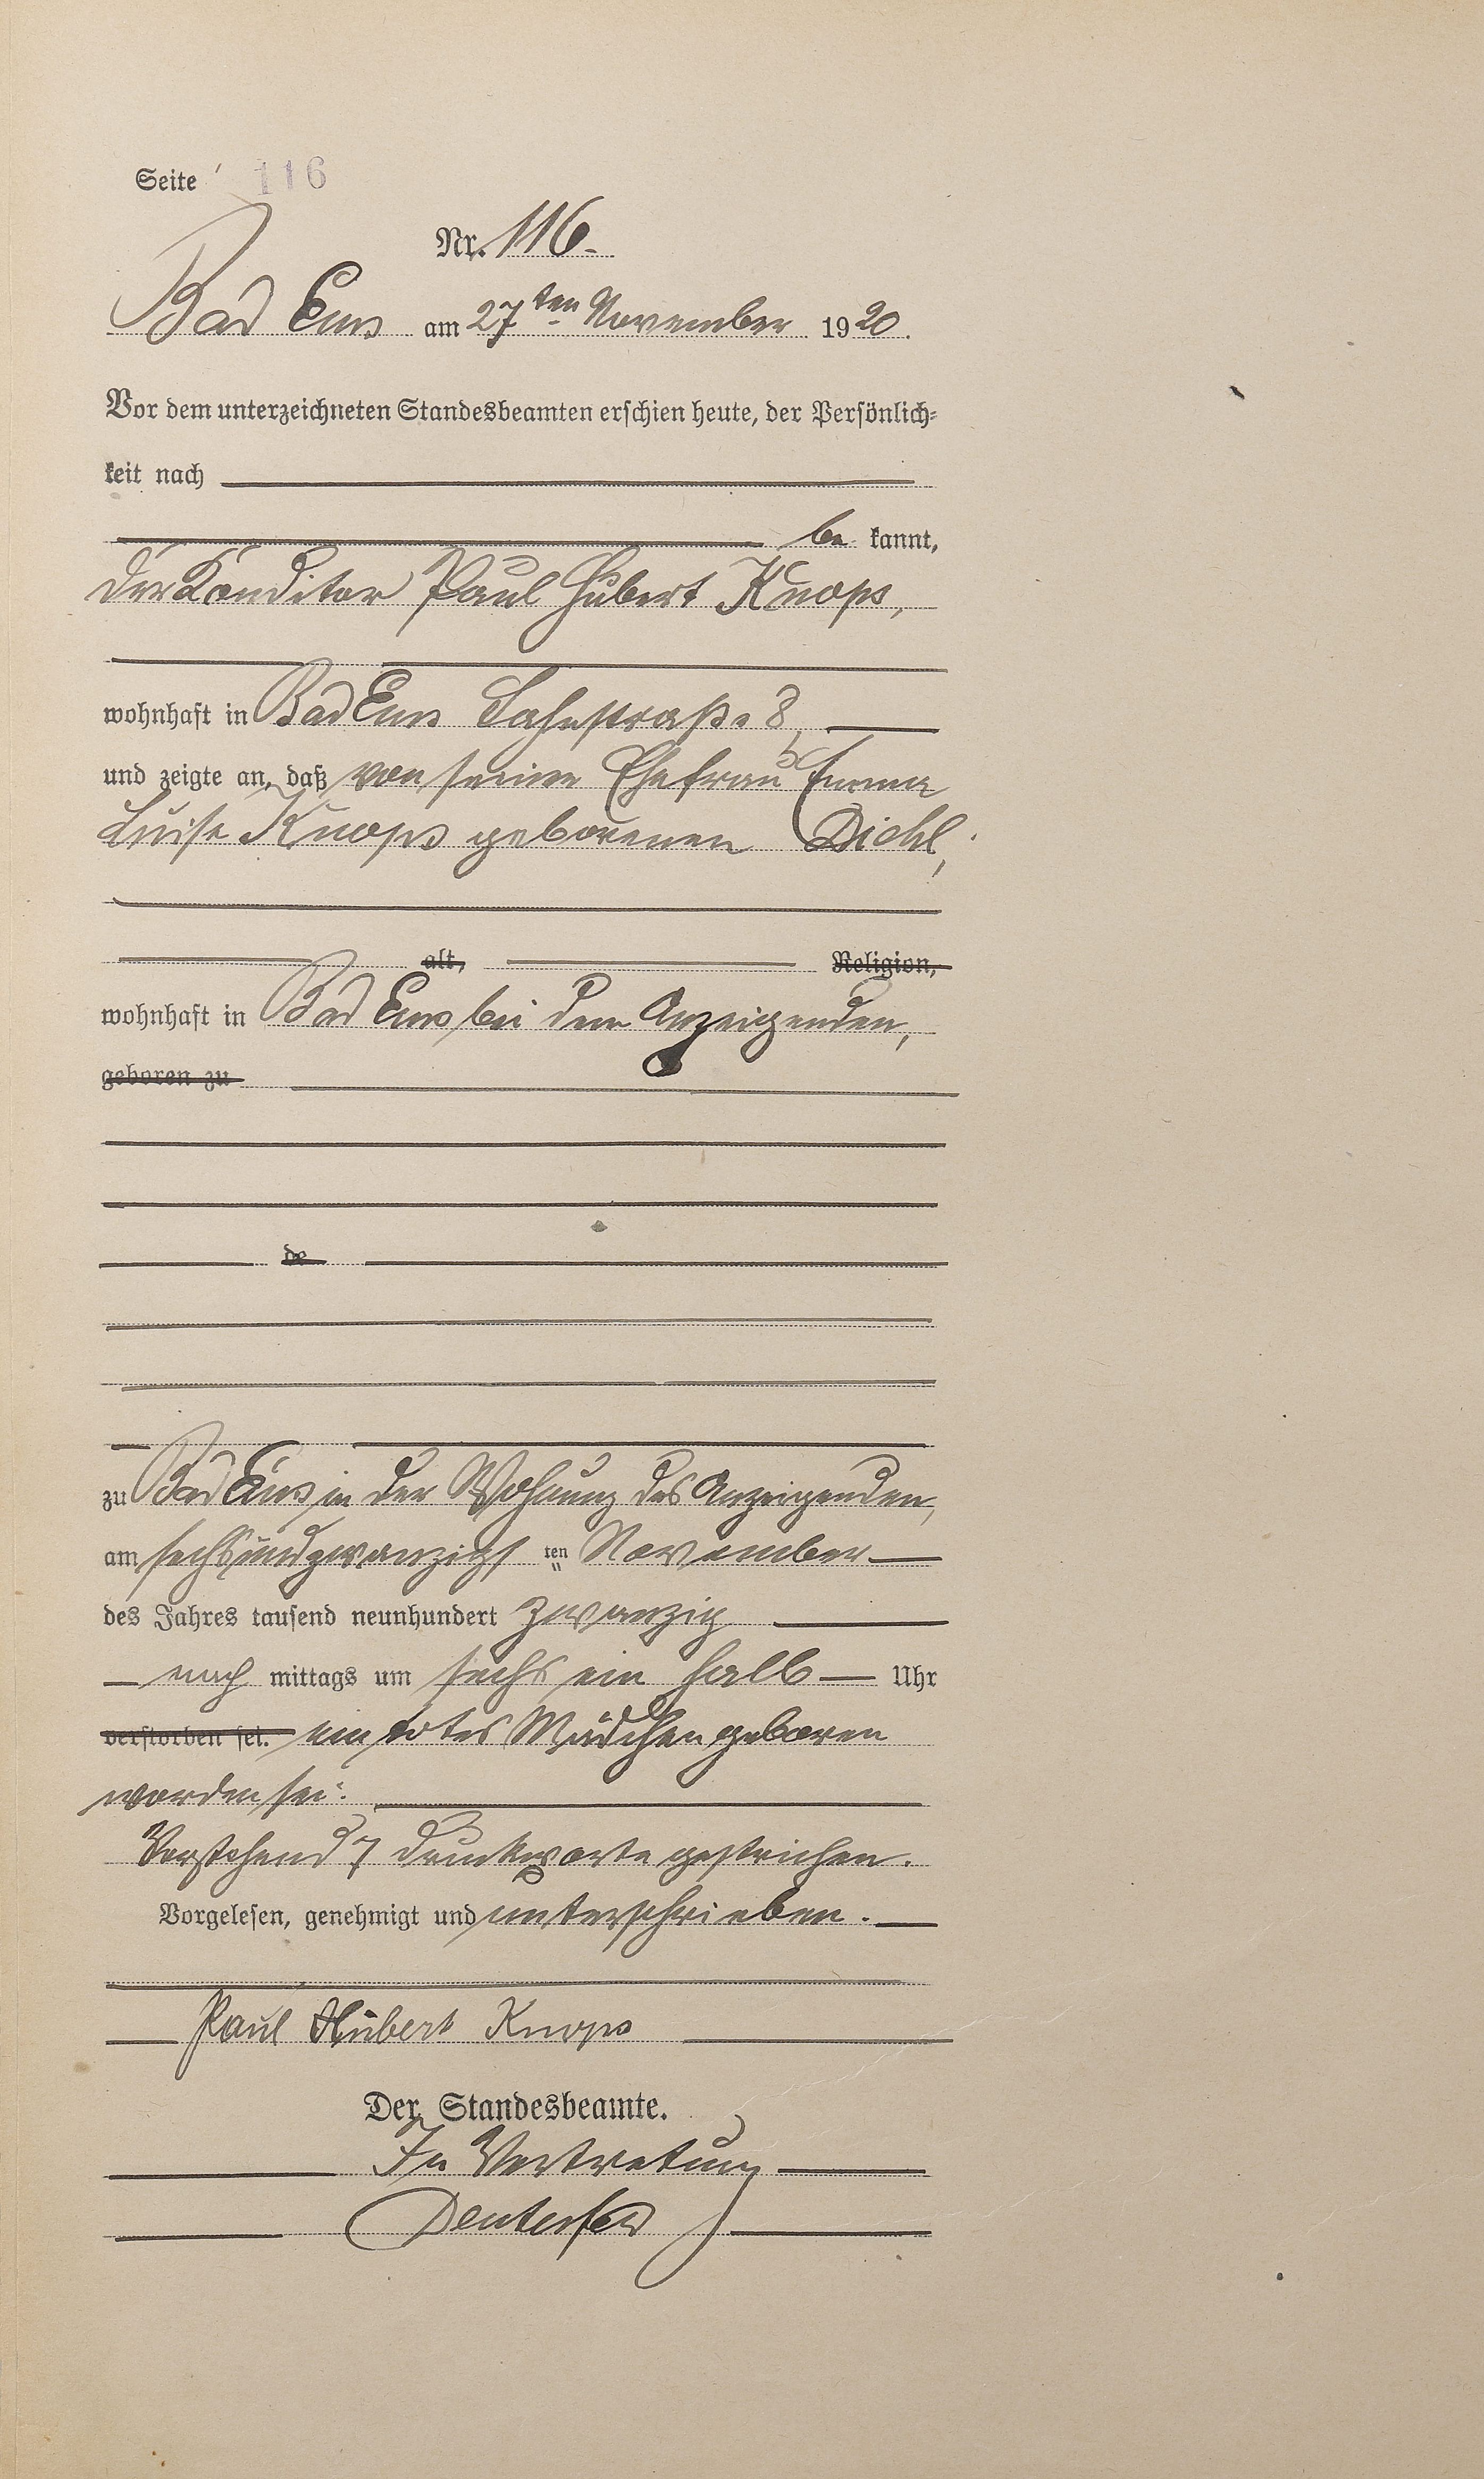 Seite 116
Nr. 116.
Bad Ems am 27ten November 1920.
Vor dem unterzeichneten Standesbeamten erschien heute, der Persönlich-
keit nach
be kannt,
der Konditor Paul Hubert Knops,
wohnhaft in Bad Ems Lahnstraße 8,
und zeigte an, daß von seiner Ehefrau Emma
Luise Knops geborenen Diehl,
alt, Religion,
wohnhaft in Bad Ems bei dem Anzeigenden,
geboren zu
de
zu Bad Ems in der Wohnung des Anzeigenden,
am sechsundzwanzigs ten November
des Jahres tausend neunhundert zwanzig
nach mittags um sechs ein halb Uhr
verstorben sei. ein totes Mädchen geboren
worden sei.
Vorstehend 7 Druckworte gestrichen.
Vorgelesen, genehmigt und unterschrieben.
Paul Hubert Knops
Der Standesbeamte.
In Vertretung